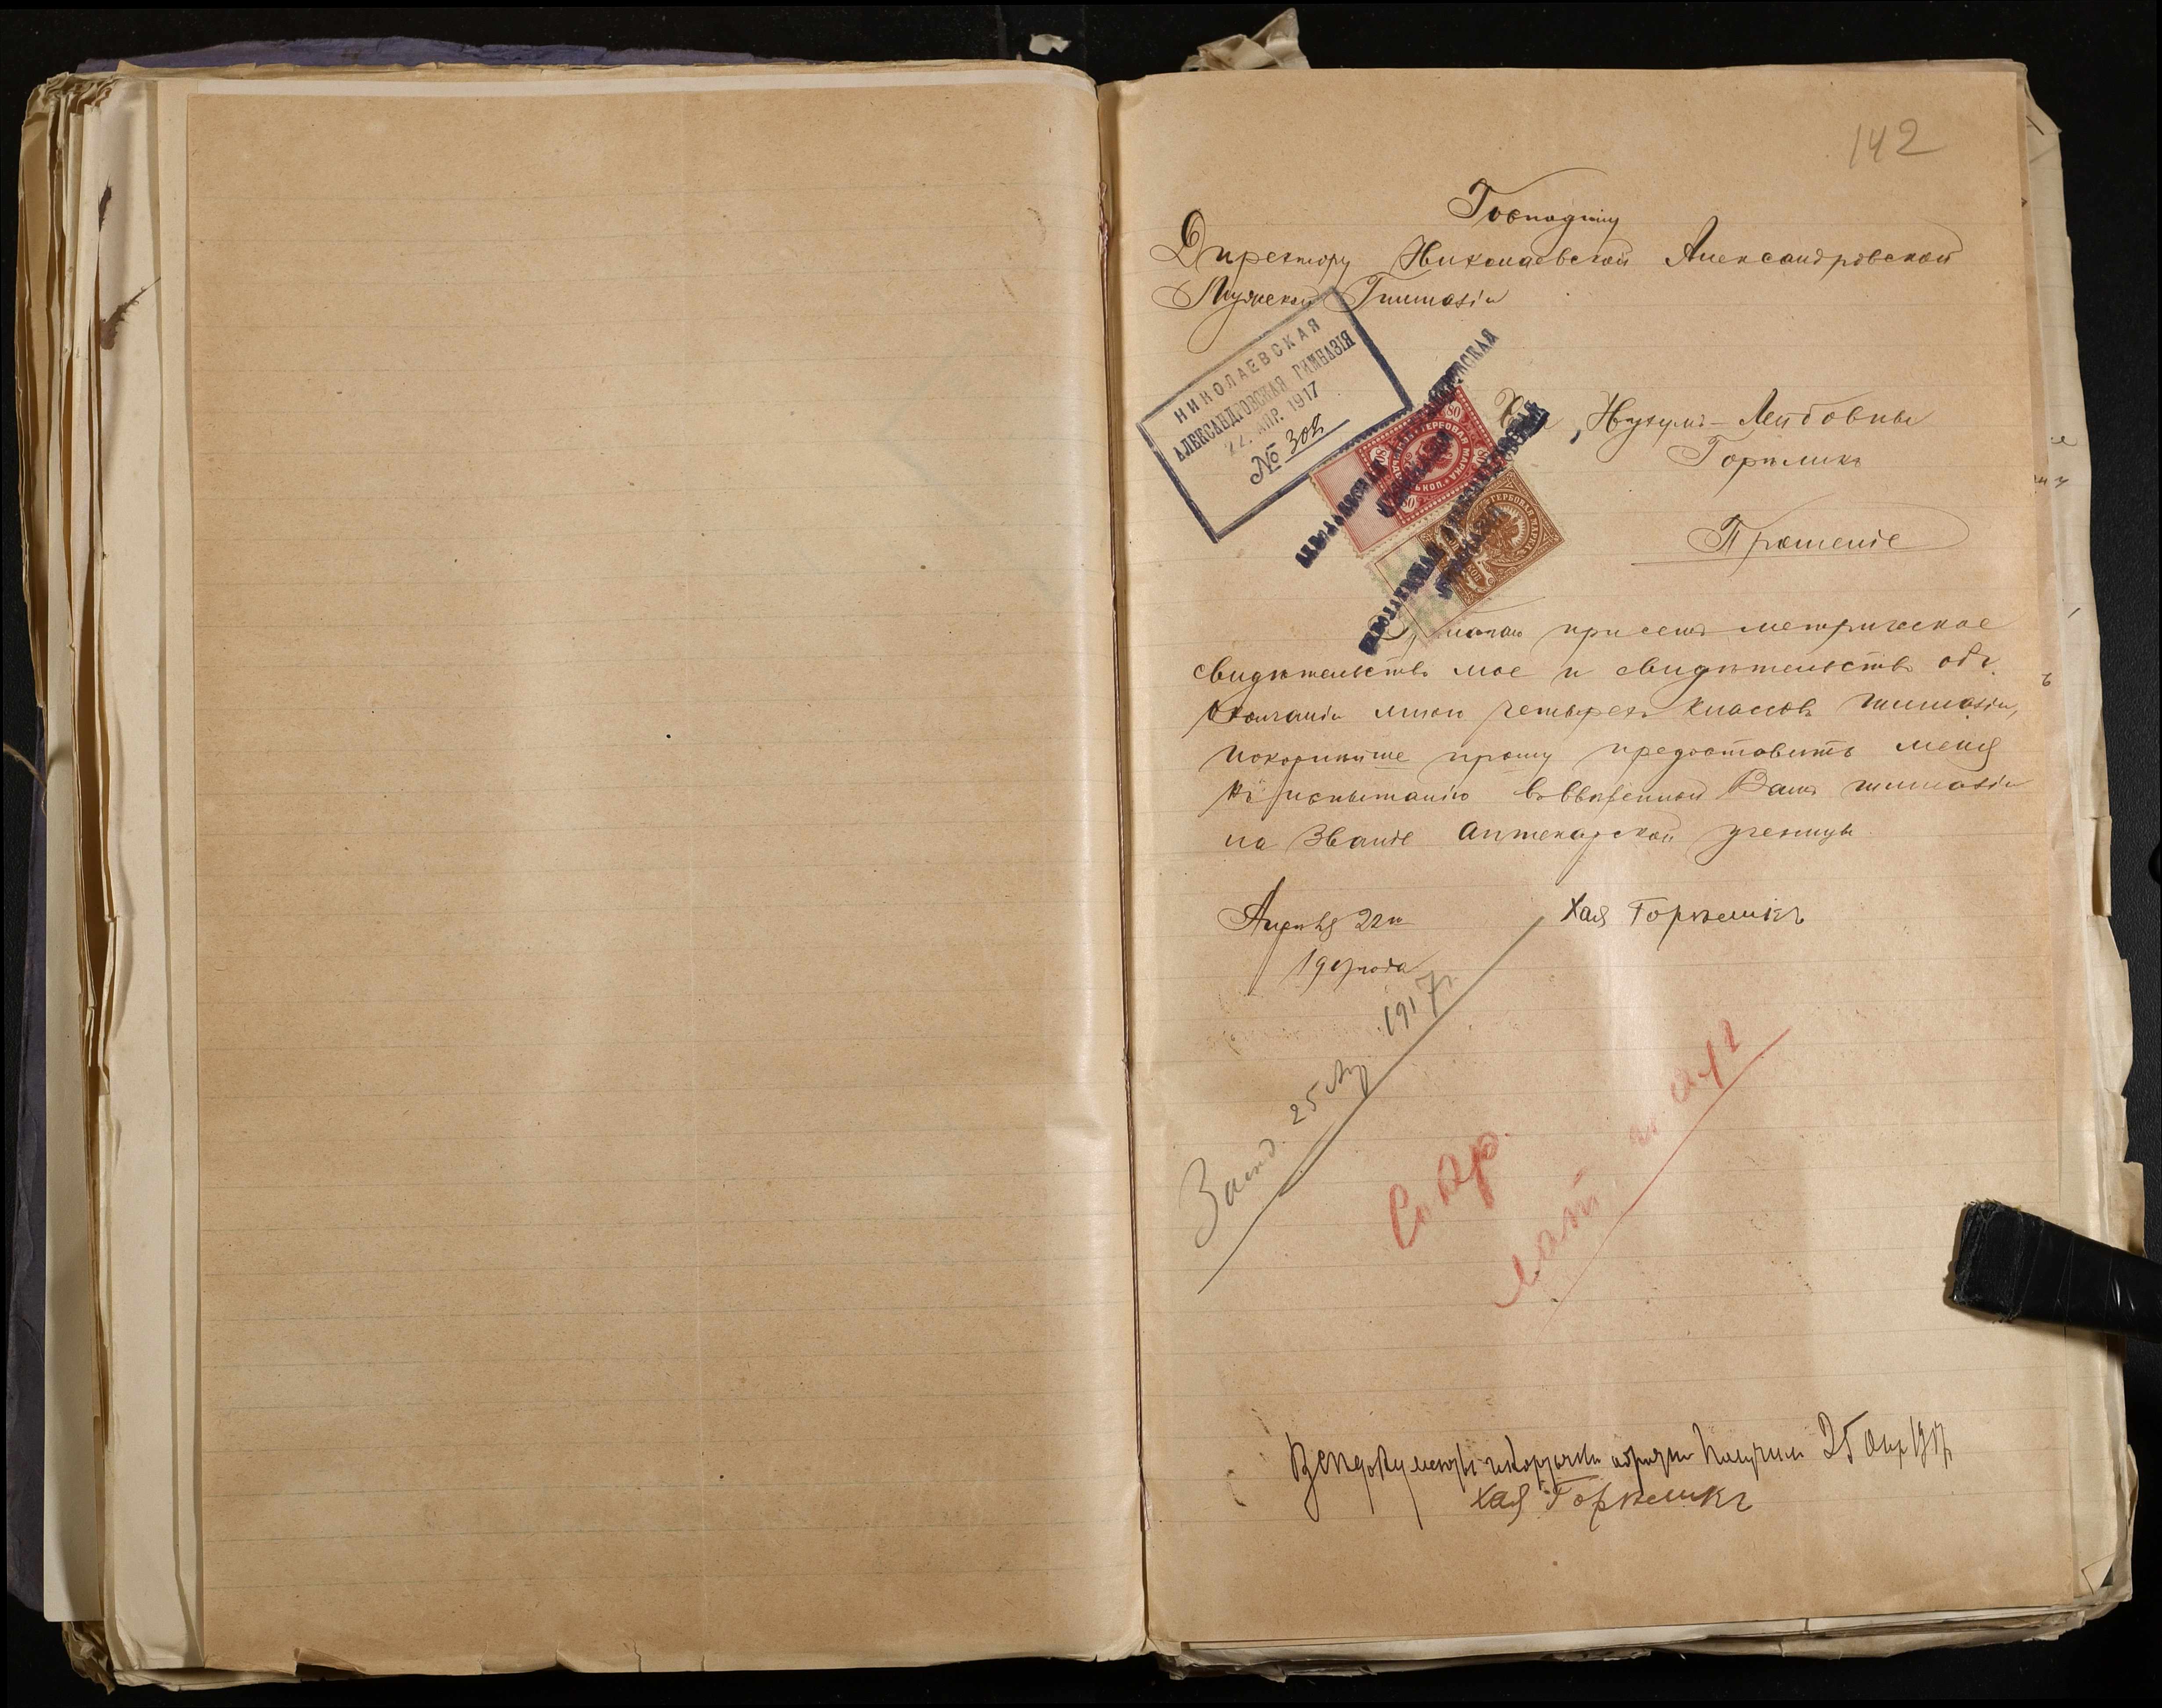 142
Господину
Директору Николаевской Александровской
Мужской Гимназіи
НИКОЛАЕВСКАЯ
АЛЕКСАНДРОВСКАЯ ГИМНАЗІЯ
22. АПР. 1917
№ 302
Лейбовны
Горѣликъ
Прошеніе
при семъ метрическое
свидѣтельство мое и свидѣтельство объ
окончаніи мною четырехъ классовъ гимназіи,
покорнѣйше прошу предоставить меня
къ испытанію во ввѣренной Вами гимназіи
на Званіе аптекарской ученицы
Апрѣля 22го
1917 года
Хая Горѣликъ
25 Ап 1917 г.
Сокр.
лат. и
Всѣ документы обратно получила 25 Апр 1917
Хая Горѣликъ